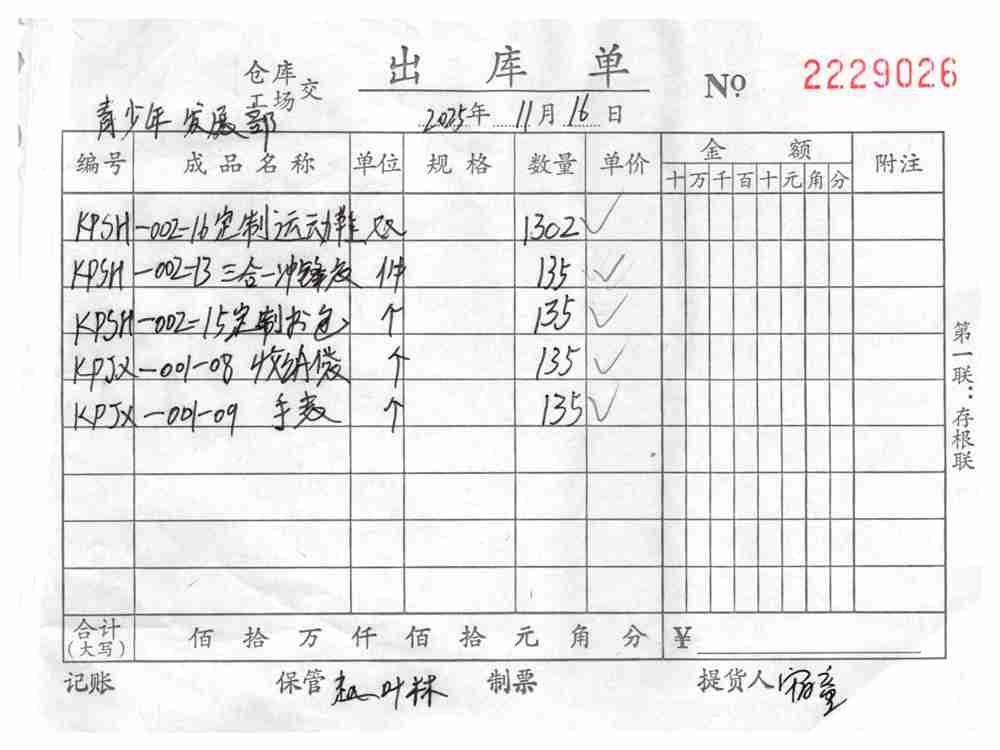 仓库
工场 交 出库单 № 2229026
青少年发展部 2025年11月16日
编号 成品名称 单位 规格 数量 单价 金额 附注
十 万 千 百 十 元 角 分
KPSH-002-16 定制运动鞋 双 1302 ✓
KPSH-002-13 三合一冲锋衣 件 135 ✓
KPSH-002-15 定制书包 个 135 ✓
KPJX-001-08 收纳袋 个 135 ✓
KPJX-001-09 手表 个 135 ✓
合计
(大写) 佰 拾 万 仟 佰 拾 元 角 分 ¥
记账 保管 赵叶林 制票 提货人
第一联:存根联